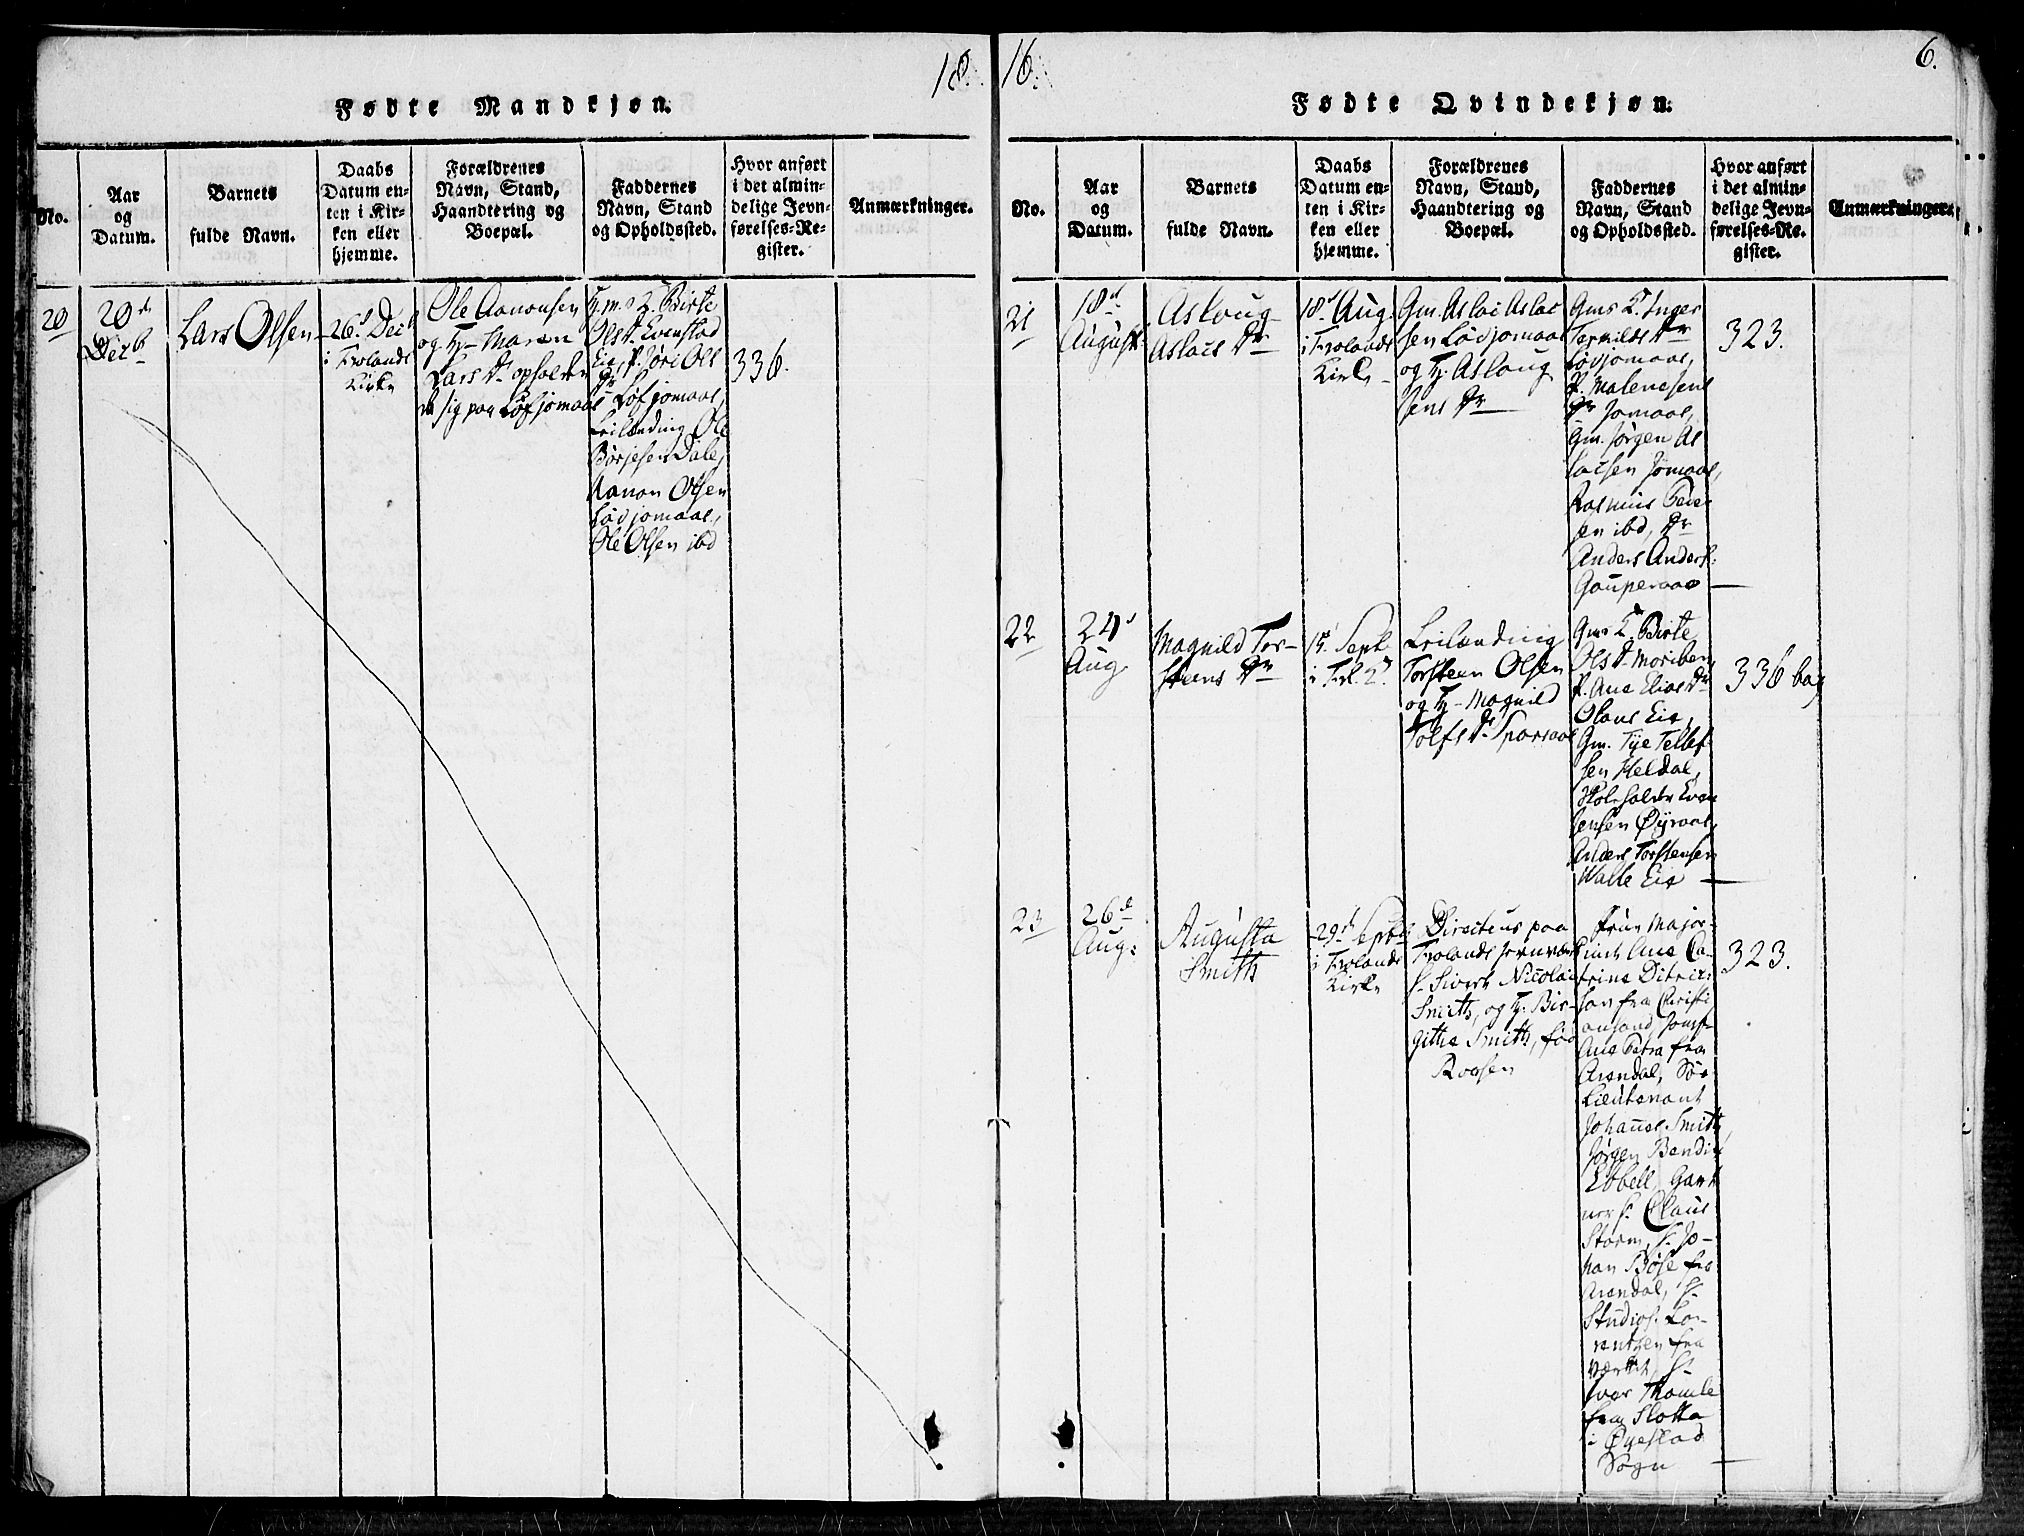 18
Fødte Mandkjøn.
No.
Aar
og
Datum.
Barnets
fulde Navn.
Daabs
Datum en-
ten i Kir-
ken eller
hjemme.
Forældrenes
Navn, Stand,
Haandtering og
Boepæl.
Faddernes
Navn, Stand
og Opholdssted.
Hvor anført
i det almin-
delige Jevn-
førelses-Re-
gister.
Anmærkninger.
20
20de
Decb
Lars Olsen
26d Decb
i Frolands
Kirke
Ole Aanonsen
og H- Maren
Lars Dr opholden
de sig paa Løfjomaas
Birte
Olsdr Evenstad
Eie, P. Jöri Ols
Dr Løfjomaas,
Leilænding Ole
Børjesen Dale,
Aanon Olsen
Lødjomaas,
Ole Olsen ibd
336.
16.
6.
Fødte Qvindekjøn.
No.
Aar
og
Datum.
Barnets
fulde Navn.
Daabs
Datum en-
ten i Kir-
ken eller
hjemme.
Forældrenes
Navn, Stand,
Haandtering og
Boepæl.
Faddernes
Navn, Stand
og Opholdssted.
Hvor anført
i det almin-
delige Jevn-
førelses-Re-
gister.
Anmærkninger.
21
18d
August
Asloug
Aslacs Dr
18d Aug
i Frolands
Kirke
Gm. Aslac Aslac
sen Lødjomaas
og H. Asloug
Jens Dr
Gms K. Inger
Terkilds Dr
Lødjomaas,
P. Malene Jens
Dr Jomaas,
Gm. Jørgen As
lacsen Jomaas,
Rasmus Peder
sen ibd,
Anders Anders.
Gauperaas
323.
22
24d
Aug
Magnild Tor-
stens Dr
15 Sept
i Frl. K.
Leilænding
Torsteen Olsen
og H- Magnild
Tolfs Dr Sparsaas
Gms K. Birte
Olsdr Moriberg
P. Ane Elias Dr
Olaus Eie,
Gm. Tÿe Tellef-
sen Heldal,
Huusholder Even
Jensen Øÿraas,
Anders Torstensen
Walle Eie
336 bag
23
26de
Aug:
Augusta
Smith
29d Septb
i Frolands
Kirke
Directeur paa
Frolands Jernværk
Hr Sivert Nicolai
Smith, og H. Bir-
githa Smith, fød
Boysen
Frue Major-
inde Ane Ca-
trine Ditrich
son fra Christi
ansand, Jomf-
Ane Petra fra
Arendal, Søe
Lieutenant
Johannes Smith,
Jørgen Bendix
Ebbell, Gart
ner Hr Claus
Storm, Hr Jo-
han Bøse fra
Arendal, Hr
Studios. Lor-
entzen fra
Værket, Hr
Iver Thomle
fra Slotta
i Øyestad
Sogn
323.